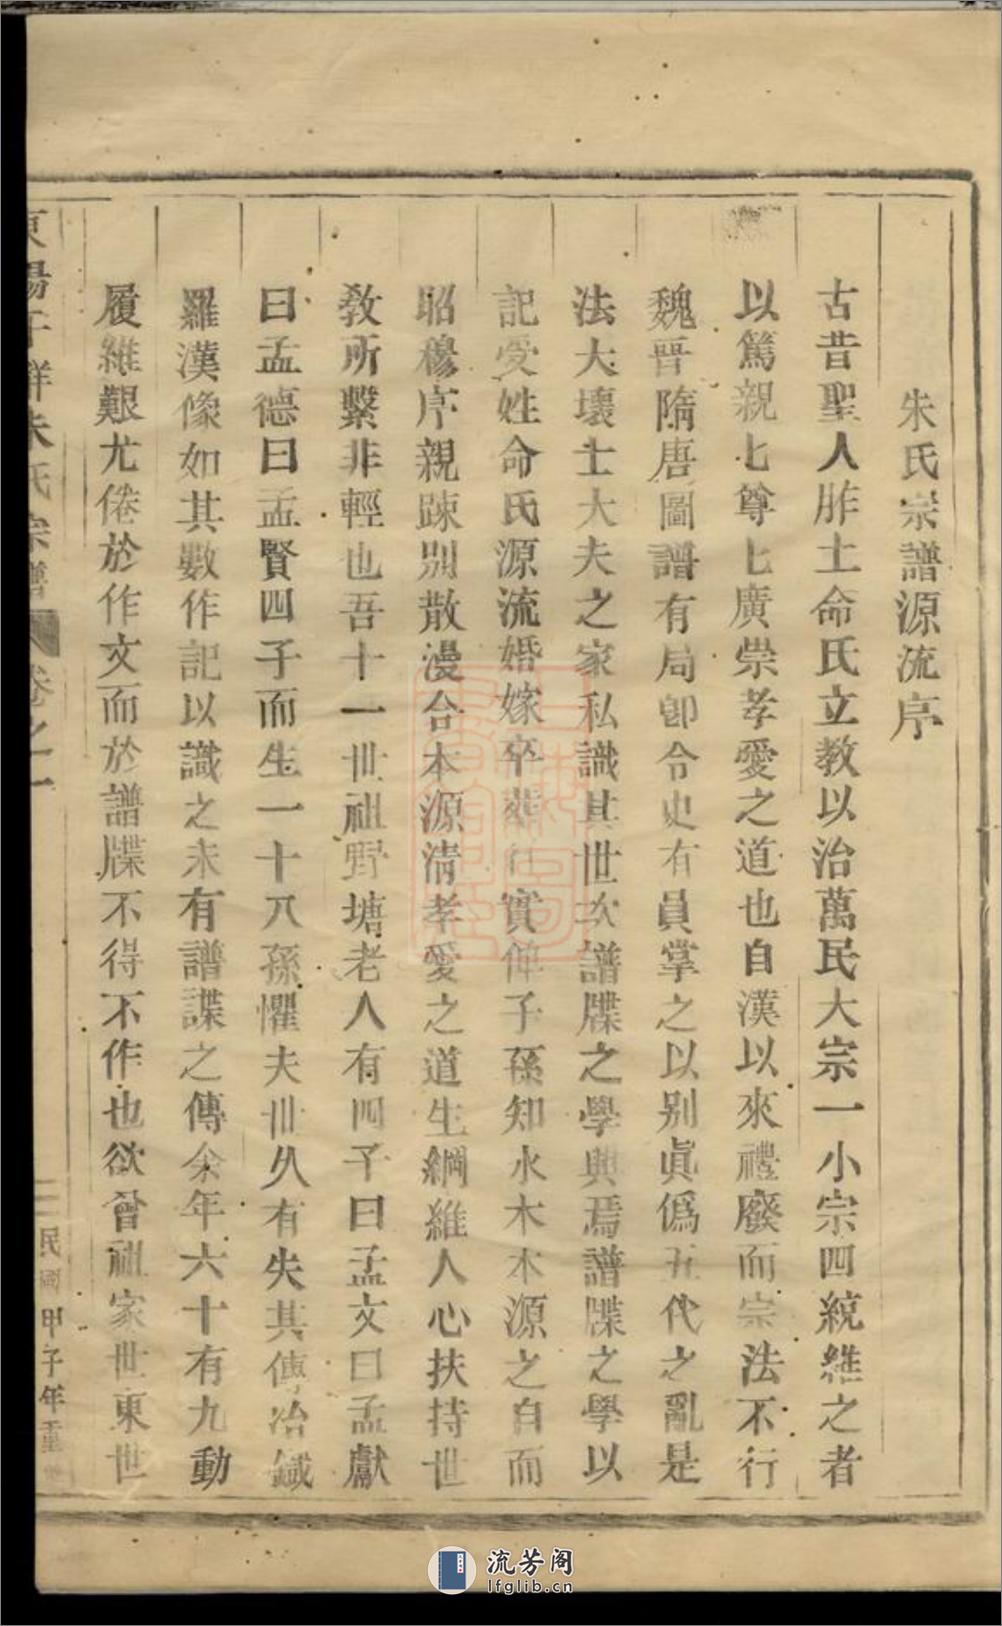 朱氏宗譜源流序
古昔聖人胙土命氏立教以治萬民大宗一小宗四統維之者
以篤親七尊七廣崇孝愛之道也自漢以來禮廢而宗法不行
魏晉隋唐圖譜有局郎令史有員掌之以别眞僞五代之亂是
法大壞士大夫之家私識其世次譜牒之學興焉譜牒之學以
記受姓命氏源流婚嫁卒葬行實俾子孫知水木本源之自而
昭穆序親踈别散漫合本源清孝愛之道生綱維人心扶持世
敎所繫非輕也吾十一世祖野塘老人有四子曰孟文曰孟獻
曰孟德曰孟賢四子而生一十八孫懼夫卋久有失其傳冶鐵
羅漢像如其數作記以識之未有譜諜之傳余年六十有九動
履維艱尤倦於作文而於譜牒不得不作也欲曾祖家世東世
東陽千祥朱氏宗譜 卷之一 民國甲子年重
流芳阁
lfglib.cn